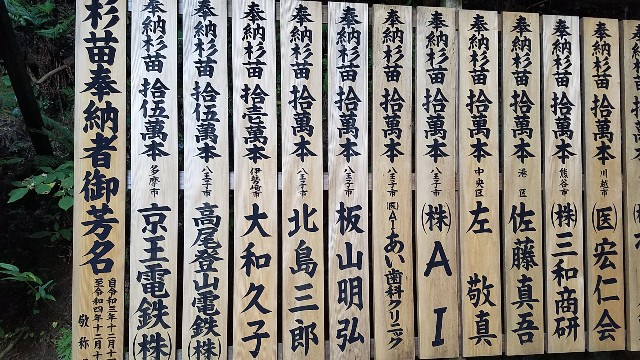 杉苗奉納者御芳名
自令和三年十二月十
至令和四年十二月十
敬称
奉納杉苗 拾伍萬本 多摩市 京王電鉄㈱
奉納杉苗 拾伍萬本 八王子市 高尾登山電鉄㈱
奉納杉苗 拾壱萬本 伊勢崎市 大和久子
奉納杉苗 拾萬本 八王子市 北島三郎
奉納杉苗 拾萬本 八王子市 板山明弘
奉納杉苗 拾萬本 八王子市 (医)AIあい歯科クリニック
奉納杉苗 拾萬本 八王子市 (株)AI
奉納杉苗 拾萬本 中央区 左 敬真
奉納杉苗 拾萬本 港区 佐藤真吾
奉納杉苗 拾萬本 熊谷市 (株)三和商研
奉納杉苗 拾萬本 川越市 (医)宏仁会